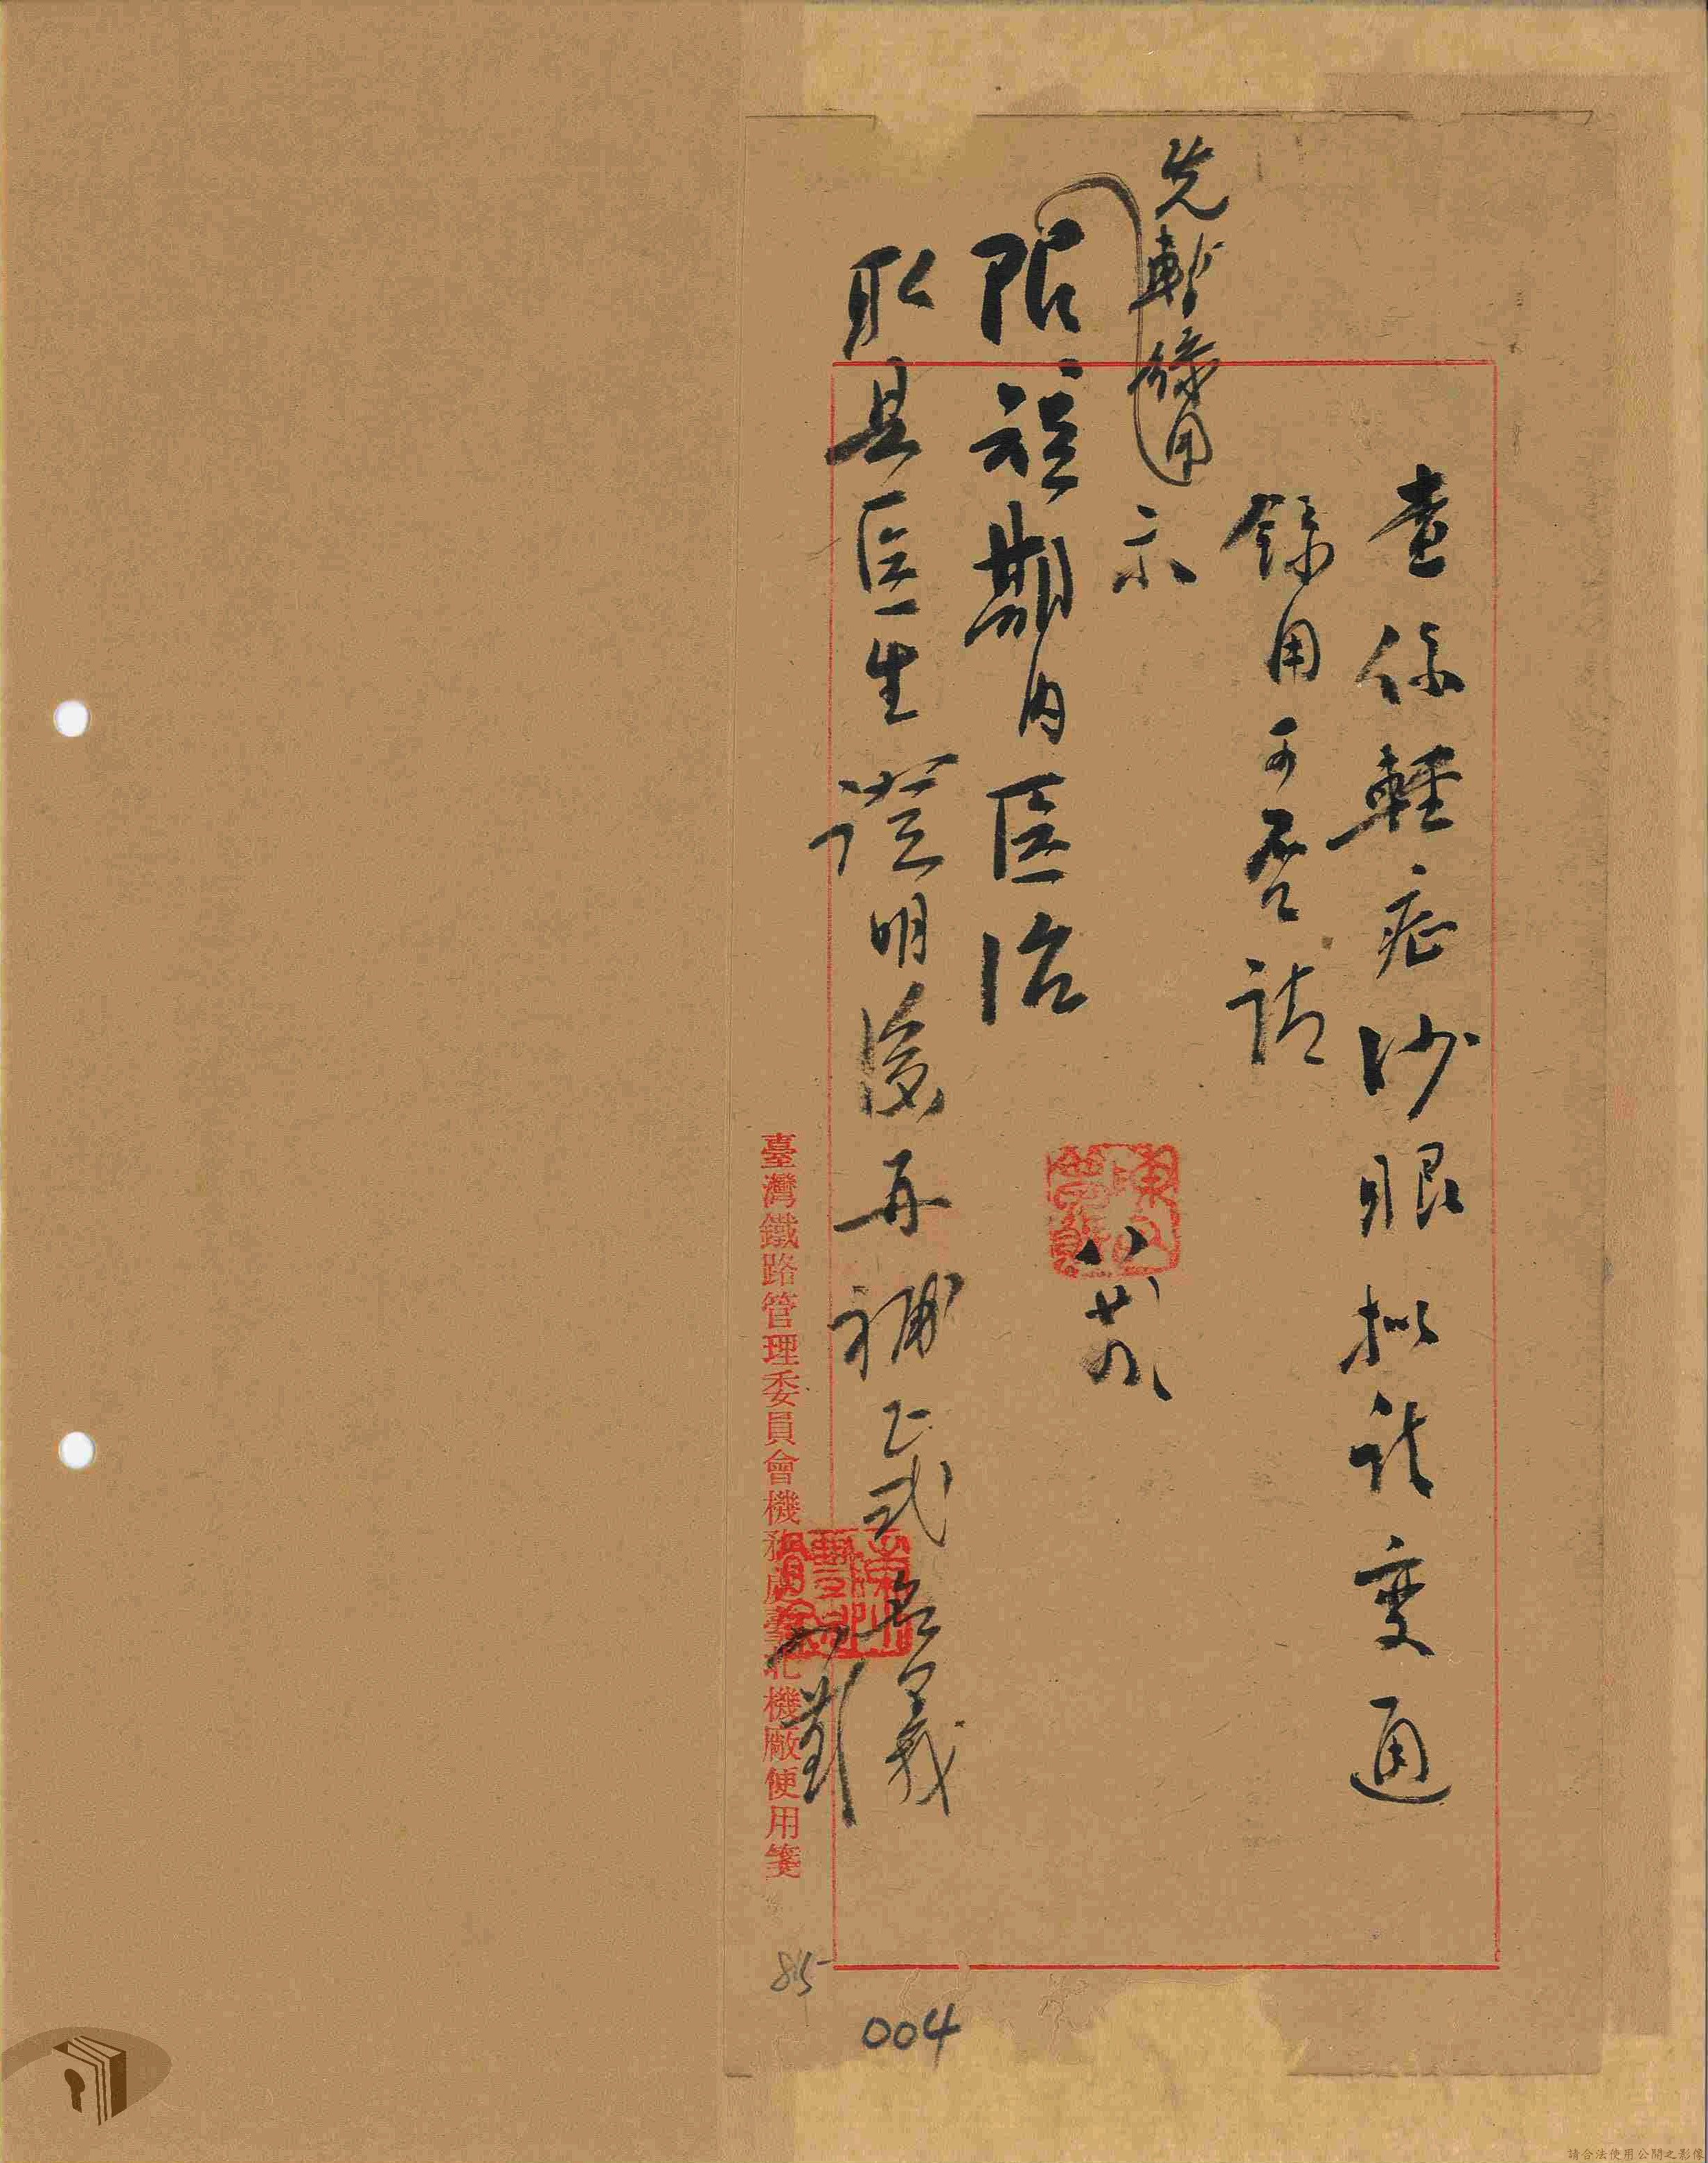 查係輕症沙眼擬請变通
錄用可否請
示
八 廿九
先暫錄用
限短期内医治
取具医生證明後再補正式名義
臺灣鐵路管理委員會機務處臺北機廠便用箋
815
004
請合法使用公開之影像